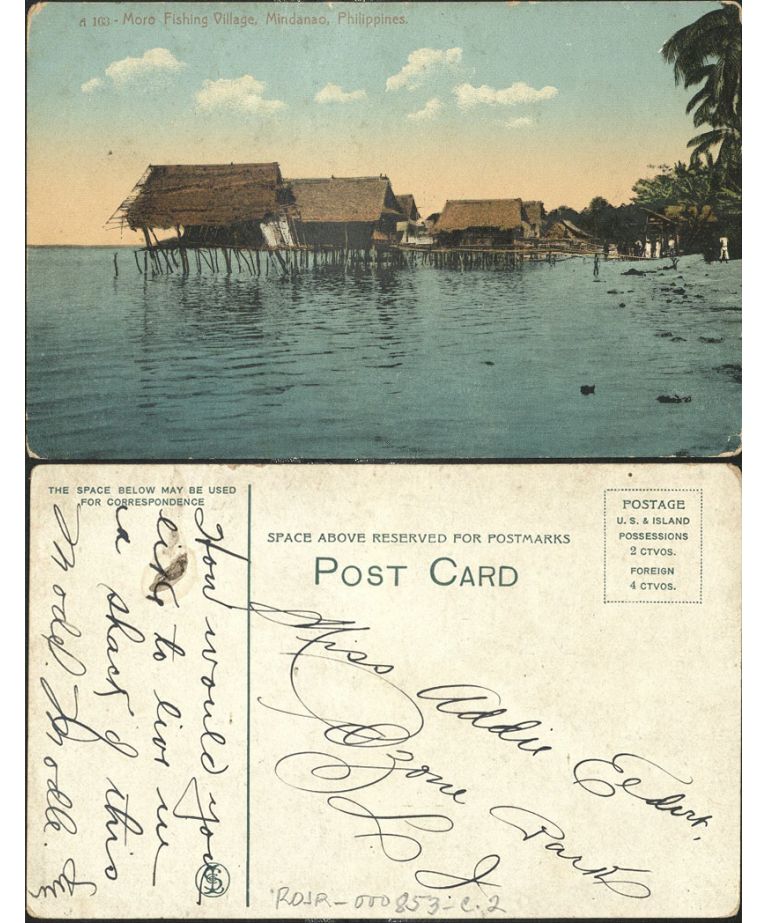 A 163 - Moro Fishing Village, Mindanao, Philippines.
THE SPACE BELOW MAY BE USED
FOR CORRESPONDENCE
How would you
like to live in
a shack of this
Model.
SPACE ABOVE RESERVED FOR POSTMARKS
POST CARD
POSTAGE
U. S. & ISLAND
POSSESSIONS
2 CTVOS.
FOREIGN
4 CTVOS.
Miss Addie Eldert,
Ozone Park
L I
ROJR-000853-C.2